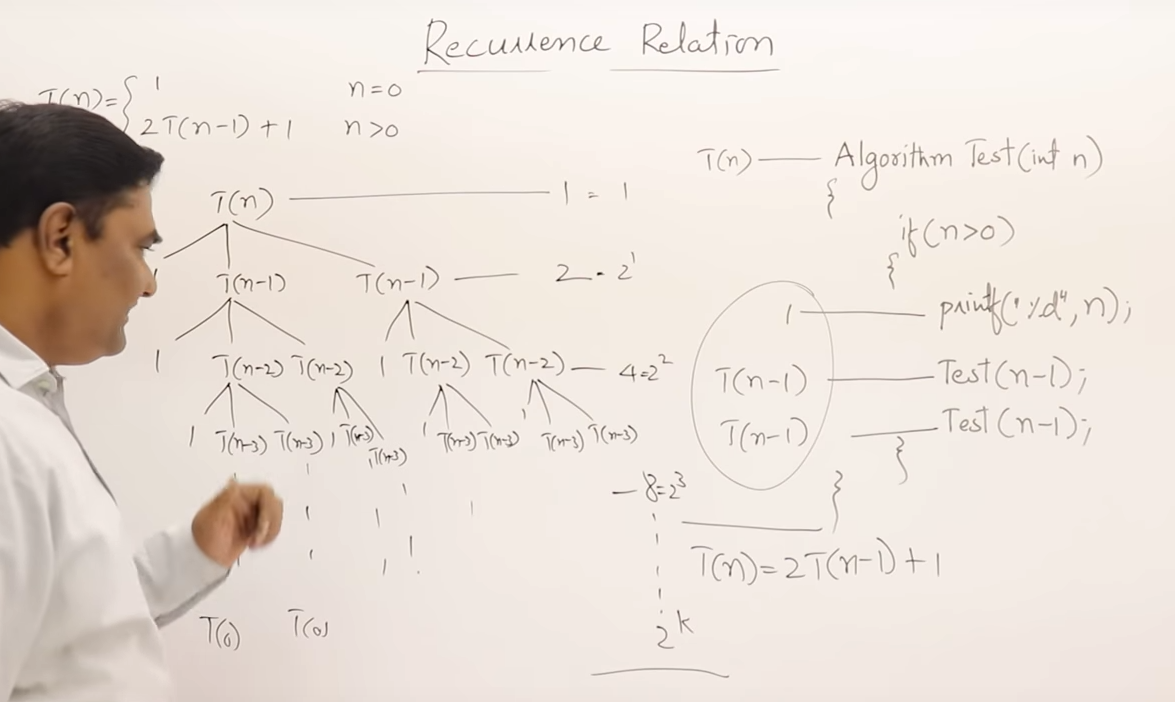 Recurrence Relation
T(n) = { 1 n=0
2T(n-1) + 1 n>0
T(n) 1 = 1
T(n-1) T(n-1) 2 - 2¹
1 T(n-2) T(n-2) 1 T(n-2) T(n-2) 4=2²
1 T(n-3) T(n-3) 1 T(n-3) T(n-3) 1 T(n-3) T(n-3) 1 T(n-3) T(n-3)
8=2³
2^k
T(0) T(0)
T(n) Algorithm Test(int n)
{
if(n>0)
{
1 printf("%d", n);
T(n-1) Test(n-1);
T(n-1) Test(n-1);
}
}
T(n)=2T(n-1)+1